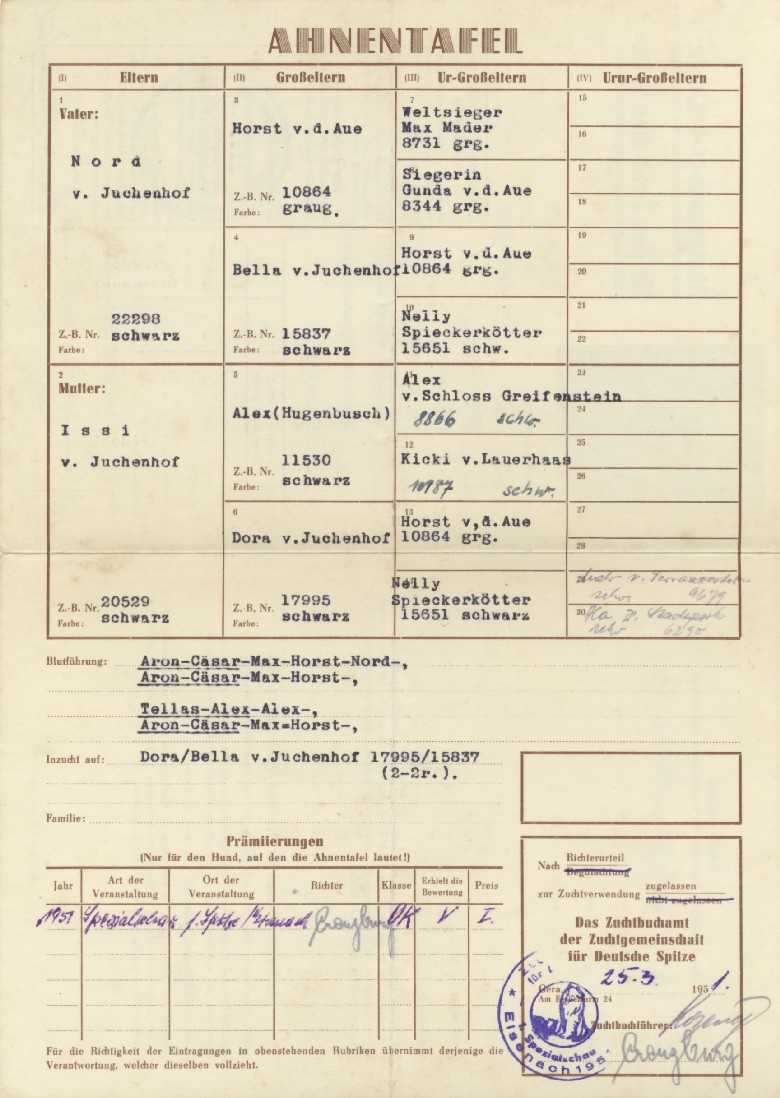 AHNENTAFEL
(I) Eltern
(II) Großeltern
(III) Ur-Großeltern
(IV) Urur-Großeltern
1
Vater:
Nord
v. Juchenhof
22298
Z.-B. Nr. schwarz
Farbe:
2
Mutter:
Issi
v. Juchenhof
Z.-B. Nr. 20529
Farbe: schwarz
3
Horst v.d.Aue
Z.-B. Nr. 10864
Farbe: graug.
4
Bella v.Juchenhof
Z.-B. Nr. 15837
Farbe: schwarz
5
Alex(Hugenbusch)
Z.-B. Nr. 11530
Farbe: schwarz
6
Dora v.Juchenhof
Z.-B. Nr. 17995
Farbe: schwarz
7
Weltsieger
Max Mader
8731 grg.
Siegerin
Gunda v.d.Aue
8344 grg.
9
Horst v.d.Aue
10864 grg.
10
Nelly
Spieckerkötter
15651 schw.
Alex
v.Schloss Greifenstein
8866 schw.
12
Kicki v.Lauerhaas
10987 schw.
13
Horst v,d.Aue
10864 grg.
Nelly
Spieckerkötter
15651 schwarz
15
16
17
18
19
20
21
22
23
24
25
26
27
28
29
30
Blutführung: Aron-Cäsar-Max-Horst-Nord-,
Aron-Cäsar-Max-Horst-,
Tellas-Alex-Alex-,
Aron-Cäsar-Max=Horst-,
Inzucht auf: Dora/Bella v.Juchenhof 17995/15837
(2-2r.).
Familie:
Prämiierungen
(Nur für den Hund, auf den die Ahnentafel lautet!)
Jahr
Art der Veranstaltung
Ort der Veranstaltung
Richter
Klasse
Erhielt die Bewertung
Preis
1951 OK V I.
Für die Richtigkeit der Eintragungen in obenstehenden Rubriken übernimmt derjenige die
Verantwortung, welcher dieselben vollzieht.
Nach Richterurteil
Begutachtung
zur Zuchtverwendung zugelassen
nicht zugelassen
Das Zuchtbuchamt
der Zuchtgemeinschaft
für Deutsche Spitze
Gera, 25.3. 1951.
Zuchtbuchführer:
1. Spezialschau
Eisenach 195